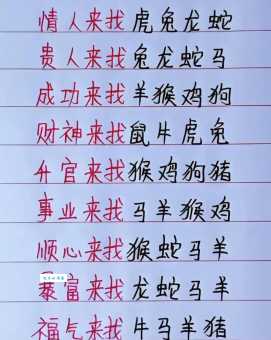 情人来找虎兔龙蛇
贵人来找兔龙蛇马
成功来找羊猴鸡狗
财神来找鼠牛虎兔
升官来找猴鸡狗猪
事业来找马羊猴鸡
顺心来找猴蛇马羊
暴富来找龙蛇马羊
福气来找牛马羊猪